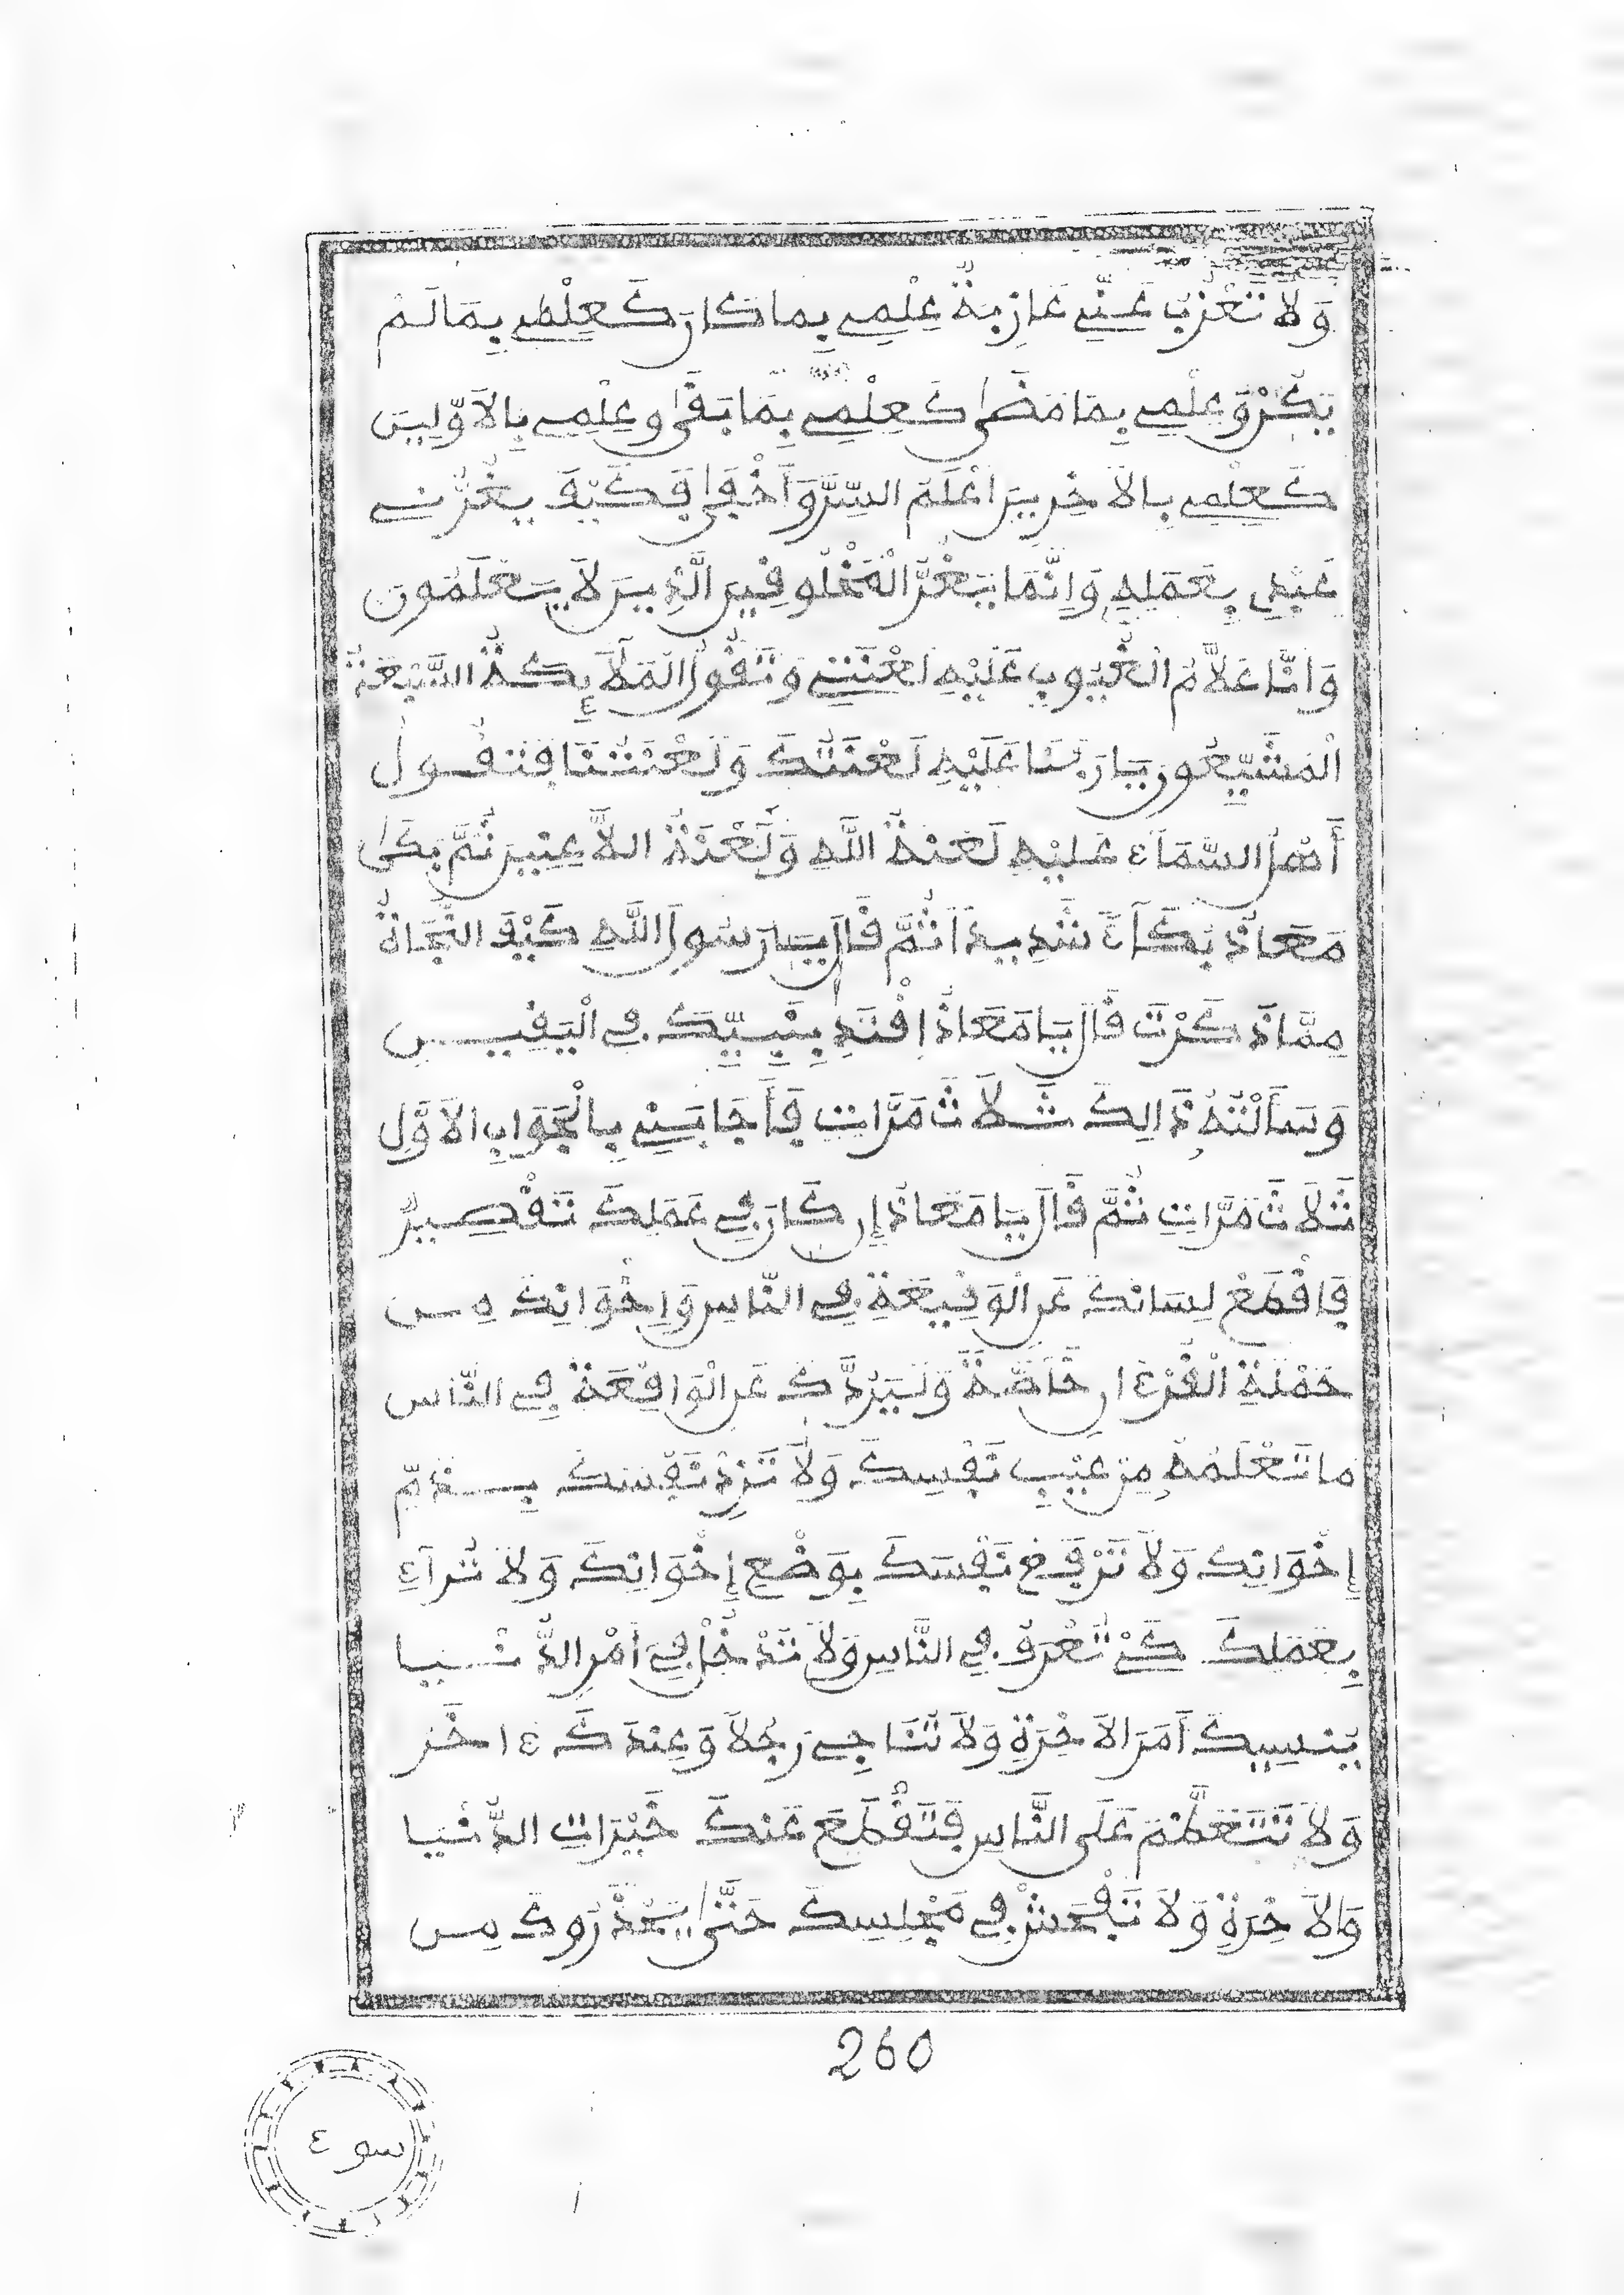 وَلَا تَعْزُبُ عَنِّي عَازِبَةٌ عِلْمِي بِمَا كَانَ كَعِلْمِي بِمَا لَمْ
يَكُنْ وَعِلْمِي بِمَا مَضَى كَعِلْمِي بِمَا بَقَى وَعِلْمِي بِالْأَوَّلِينَ
كَعِلْمِي بِالْآخِرِينَ أَعْلَمُ السِّرَّ وَأَخْفَى فَكَيْفَ يَغُرُّنِي
عَبْدِي بِعَمَلِهِ وَإِنَّمَا يَغُرُّ الْمَخْلُوقِينَ الَّذِينَ لَا يَعْلَمُونَ
وَأَنَا عَلَّامُ الْغُيُوبِ عَلَيْهِ لَعْنَتِي وَتَقُولُ الْمَلَائِكَةُ السَّبْعَةُ
الْمُشَيِّعُونَ يَا رَبَّنَا عَلَيْهِ لَعْنَتُكَ وَلَعْنَتُنَا فَتَقُولُ
أَهْلُ السَّمَاءِ عَلَيْهِ لَعْنَةُ اللَّهِ وَلَعْنَةُ اللَّاعِنِينَ ثُمَّ بَكَى
مَعَاذٌ بُكَاءً شَدِيدًا ثُمَّ قَالَ يَا رَسُولَ اللَّهِ كَيْفَ النَّجَاةُ
مِمَّا ذَكَرْتَ قَالَ يَا مَعَاذُ اِقْتَدِ بِنَبِيِّكَ فِي الْيَقِينِ
وَسَأَلْتُهُ ذَالِكَ ثَلَاثَ مَرَّاتٍ فَأَجَابَنِي بِالْجَوَابِ الْأَوَّلِ
ثَلَاثَ مَرَّاتٍ ثُمَّ قَالَ يَا مَعَاذُ إِن كَانَ فِي عَمَلِكَ تَقْصِيرٌ
فَاقْطَعْ لِسَانَكَ عَنِ الْوَقِيعَةِ فِي النَّاسِ وَإِخْوَانِكَ مِن
حَمَلَةِ الْقُرْءَانِ خَاصَّةً وَلْيَرُدَّكَ عَنِ الْوَاقِعَةِ فِي النَّاسِ
مَا تَعْلَمُهُ مِنْ عَيْبِ نَفْسِكَ وَلَا تَزِدْ نَفْسَكَ بِذَمِّ
إِخْوَانِكَ وَلَا تَرْفَعْ نَفْسَكَ بِوَضْعِ إِخْوَانِكَ وَلَا تُرَاءِ
بِعَمَلِكَ كَيْ تُعْرَفَ فِي النَّاسِ وَلَا تَدْخُلْ فِي أَمْرِ الدُّنْيَا
يُنسِيكَ أَمَرَ الْآخِرَةِ وَلَا تُنَاجِي رَجُلًا وَعِندَكَ ءَاخَرُ
وَلَا تَتَعَظَّمْ عَلَى النَّاسِ فَتَقْطَعَ عَنكَ خَيْرَاتِ الدُّنْيَا
وَالْآخِرَةِ وَلَا تَفْحَشْ فِي مَجْلِسِكَ حَتَّى يَحْذَرُوكَ مِن
260
سو ٤